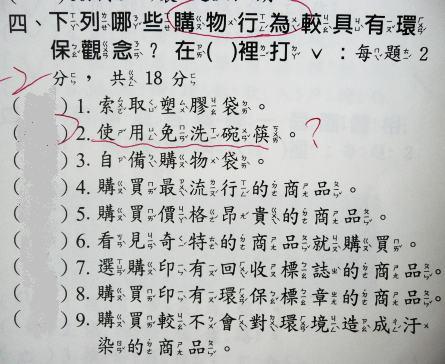 四、下列哪些購物行為較具有環
保觀念?在( )裡打ˇ:每題2
分,共18分
-2
( )1.索取塑膠袋。
( )2.使用免洗碗筷。?
( )3.自備購物袋。
( )4.購買最流行的商品。
( )5.購買價格昂貴的商品。
( )6.看見奇特的商品就購買。
( )7.選購印有回收標誌的商品。
( )8.購買印有環保標章的商品。
( )9.購買較不會對環境造成汙
染的商品。